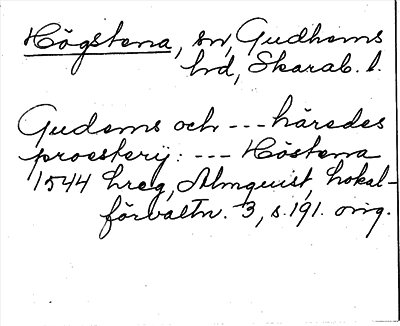 Högstena, sn, Gudhems
hd, Skarab. l.
Gudems och --- häredes
proestery: --- Höstena
1544 hreg, Almquist, Lokal-
förvaltn. 3, s. 191. orig.